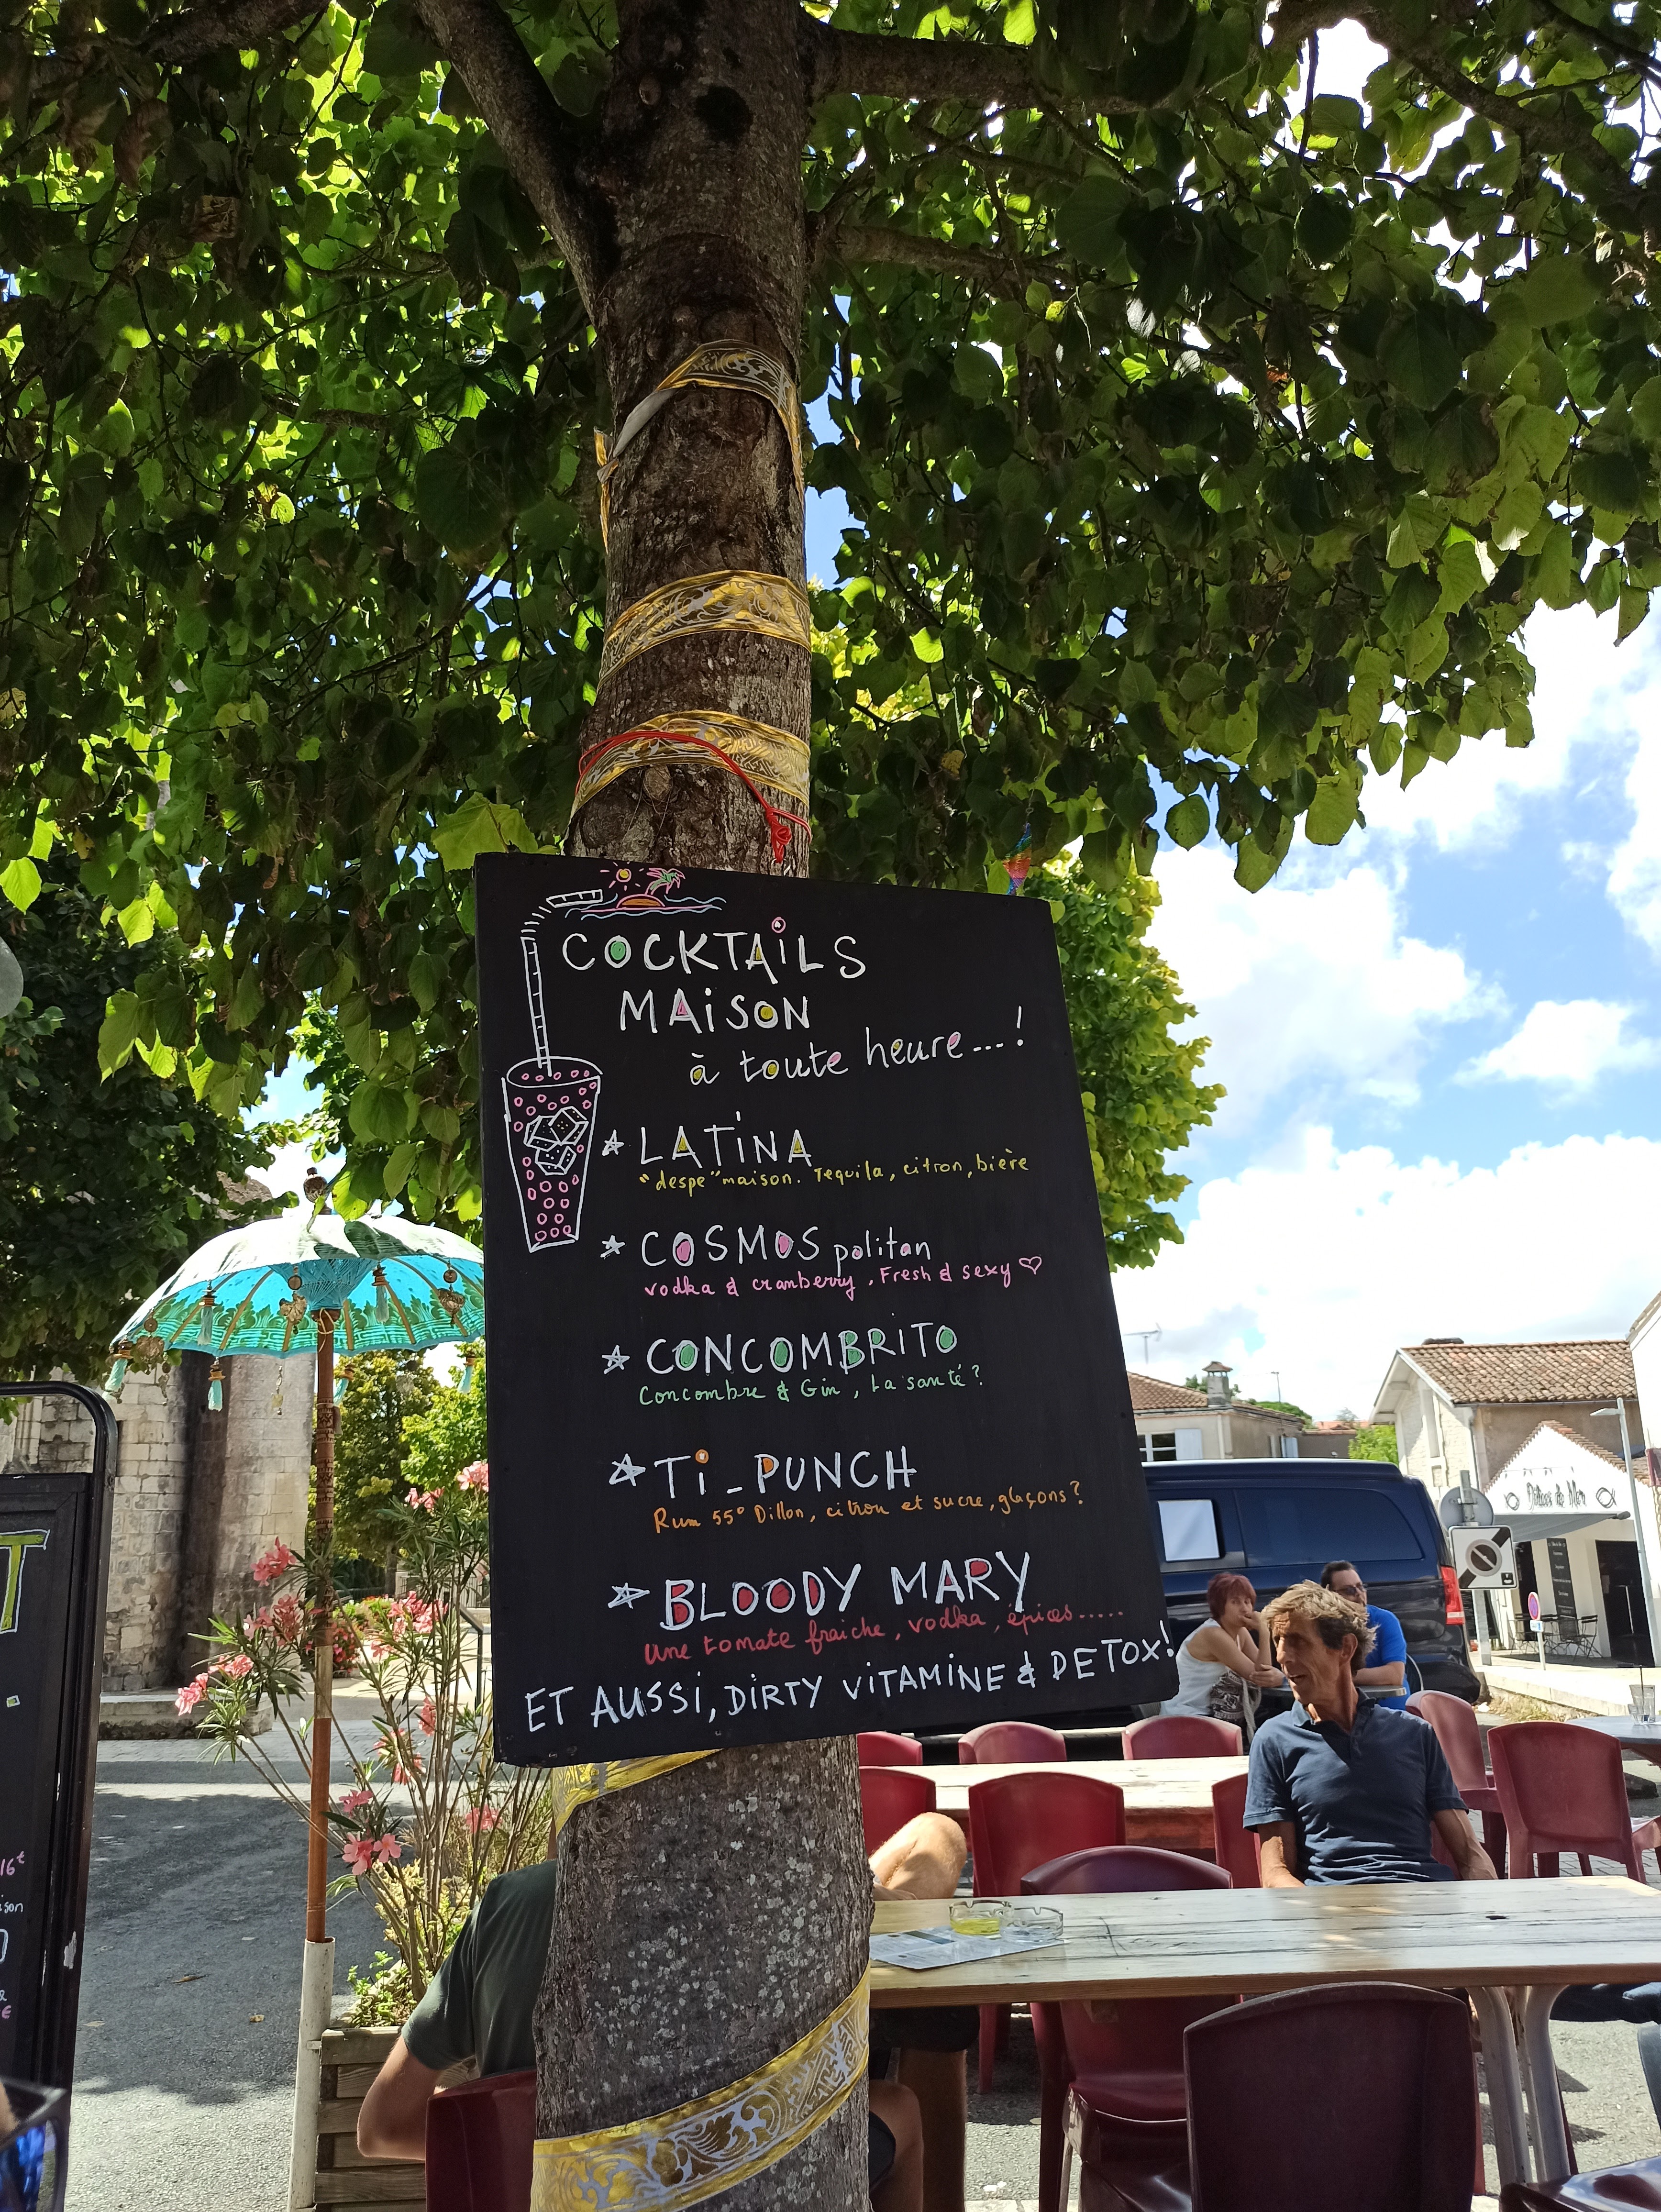 COCKTAiLS
MAiSON
à toute heure---!
LATiNA
"despe" maison. Tequila, citron, bière
COSMOS politan
vodka & cranberry, Fresh & sexy ♡
CONCOMBRITO
Concombre & Gin, La santé?
Ti_PUNCH
Rum 55° Dillon, citron et sucre, glaçons?
BLOODY MARY
une tomate fraiche, vodka, épices.....
ET AUSSi, DiRTY ViTAMiNE & DETOX!
Délices de Mer
T
16€
ison
€